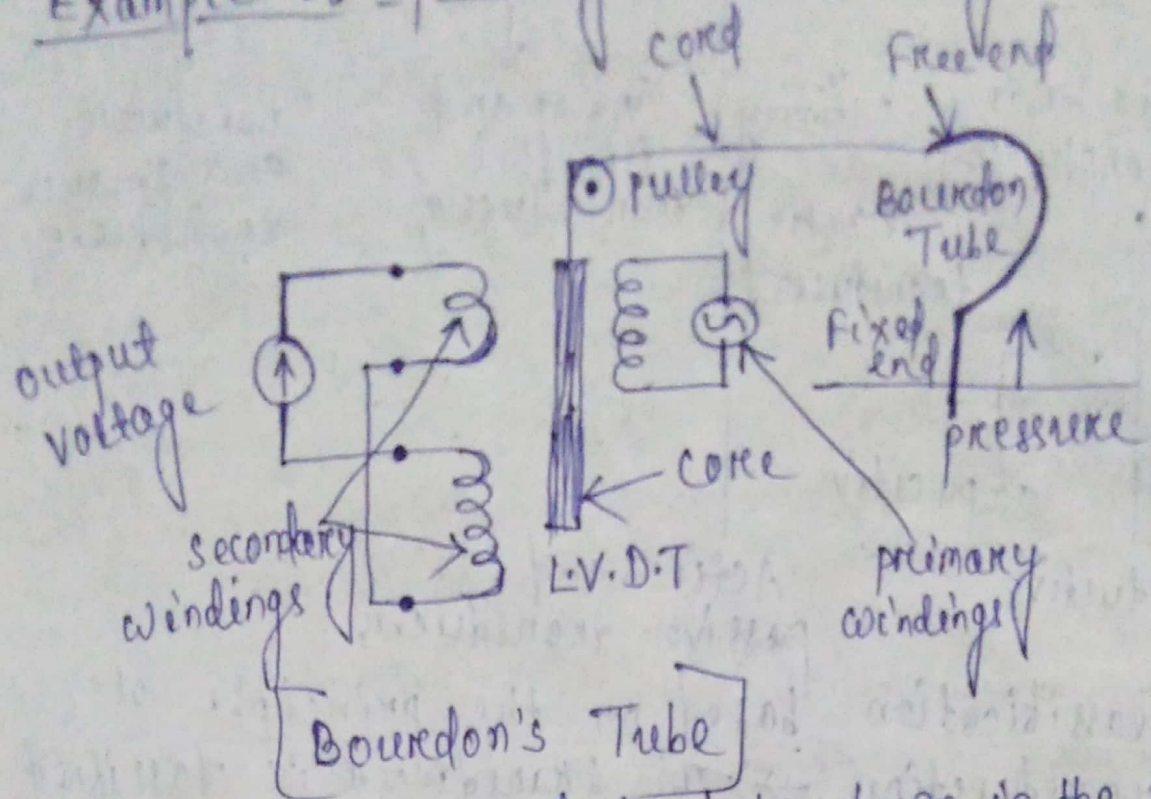 Example
Cord
Free end
Pulley
Bourdon
Tube
Fixed
end
pressure
output
voltage
core
secondary
windings
L.V.D.T
primary
windings
Bourdon's Tube
in the